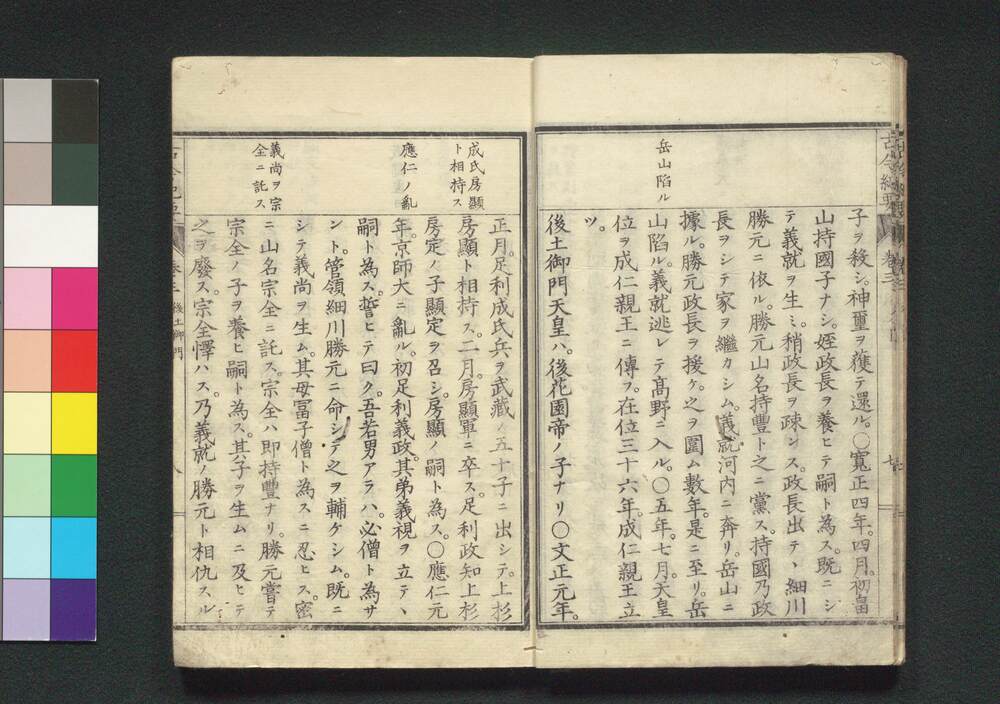 岳山陷ル
子ヲ殺シ。神璽ヲ獲テ還ル。〇寬正四年。四月。初畠
山持國子ナシ。姪政長ヲ養ヒテ嗣ト為ス。既ニシ
テ義就ヲ生ミ。稍政長ヲ疎ンス。政長出テ丶細川
勝元ニ依ル。勝元山名持豐ト之ニ黨ス。持國乃政
長ヲシテ家ヲ繼カシム。義就河内ニ奔リ。岳山ニ
據ル。勝元政長ヲ援ケ。之ヲ圍ム數年。是ニ至リ。岳
山陷ル。義就逃レテ髙野ニ入ル。〇五年。七月。天皇
位ヲ成仁親王ニ傳フ。在位三十六年。成仁親王立
ツ。
後土御門天皇ハ。後花園帝ノ子ナリ〇文正元年。
成氏房顯
ト相持ス
應仁ノ亂
義尚ヲ宗
全ニ託ス
正月。足利成氏兵ヲ武藏ノ五十子ニ出シテ。上杉
房顯ト相持ス。二月。房顯軍ニ卒ス。足利政知上杉
房定ノ子顯定ヲ召シ。房顯ノ嗣ト為ス。〇應仁元
年。京師大ニ亂ル。初足利義政。其弟義視ヲ立テ丶
嗣ト為ス。誓ヒテ曰ク。吾若男アラハ。必僧ト為サ
ント。管領細川勝元ニ命シテ之ヲ輔ケシム。既ニ
シテ義尚ヲ生ム。其母冨子僧ト為スニ忍ヒス。密
ニ山名宗全ニ託ス。宗全ハ即持豐ナリ。勝元嘗テ
宗全ノ子ヲ養ヒ嗣ト為ス。其子ヲ生ムニ及ヒテ
之ヲ廢ス。宗全懌ハス。乃義就ノ勝元ト相仇スル
卷三 後土御門 八